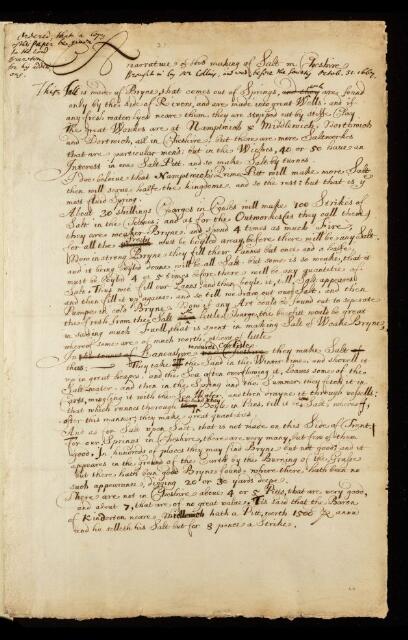 Ordered, that a Copy
of the paper be given
to the Lord
Brereton
A narrative of the making of Salt in Cheshire
Brought in by Mr Colley, and read before the Society Octob. 31. 1667.
The Salt is made of Bryne, that comes out of Springs, and are found
only by the side of Rivers, and are made into great Wells; and if
any fresh water lyes neare them, they are stopped out by stiffe Clay
The great Workes are at Namptwich & Middlewich, Nortwich
and Dirtwich, all in Cheshire; but there are more Saltworkes
that are particular mens; but in the Wiches, 40 or 50 have an
Interest in one Salt Pitt, and so make Salt by turnes
I doe beleeve that Namptwich Prime Pitt will make more Salt
then will serve halfe the kingdome, and so the rest; but that is ye
most fluid Spring.
About 30 shillings Charges in Coales will make 100 Strikes of
Salt in the and as for the Outworkes (as they call them)
they are weaker Bryne, and spend 4 times as much Fire,
for all the must be boyled away, before there will be any Salt.
Now in strong Bryne they fill there Panns but once, and a little,
and it being boyled downe will be all Salt but some is so weake, that it
must be boyled 4 or 5 times before there will be any quantitie of
Salt. They first fill our Panns, and then boyle it, till Salt appeares
and then fill it up againe, and so till we draw out more Salt, and then
Pumpe in cold Bryne. Now if any Art could be found out to separate
the fresh from the Salt with little Charge, the benefit would be great
in saving much Fuell, that is spent in making Salt of Weake Bryne,
whereof some are so much worth, others of little
In of Lancashire they make Salt
thus: They take the Sand in the Winter time, and all it
up in great heapes, and the Sea often overflowing it, leaves some of the
Salt water, and then in the Spring and the Summer they fetch it in
Carts, mingling it with the Sea Water, and then drayne it through vessells;
that which runnes through they boyle in Panns, till it be Salt, whereof,
after this manner, they make great quantities.
And as for Salt upon Salt, that is not made on this Side of Trent
For our Springs in Cheshire, there are very many, but few of them
Good. In hundreds of places they may find Bryne but not good and it
appeares in the ground of the Earth by the Burning of the Grasse
but there hath been good Bryne found, where there hath been no
such appearance, digging 20 or 30 yards deepe.
There are not in Cheshire above 4 or 5 Pitts, that are very good,
and about 7, that are of no great value. Tis said that the Baron
of Kinderton neare Middlewich hath a Pitt, worth 1500 £ p annu
and he selleth his Salt but for 8 pence a Strike.